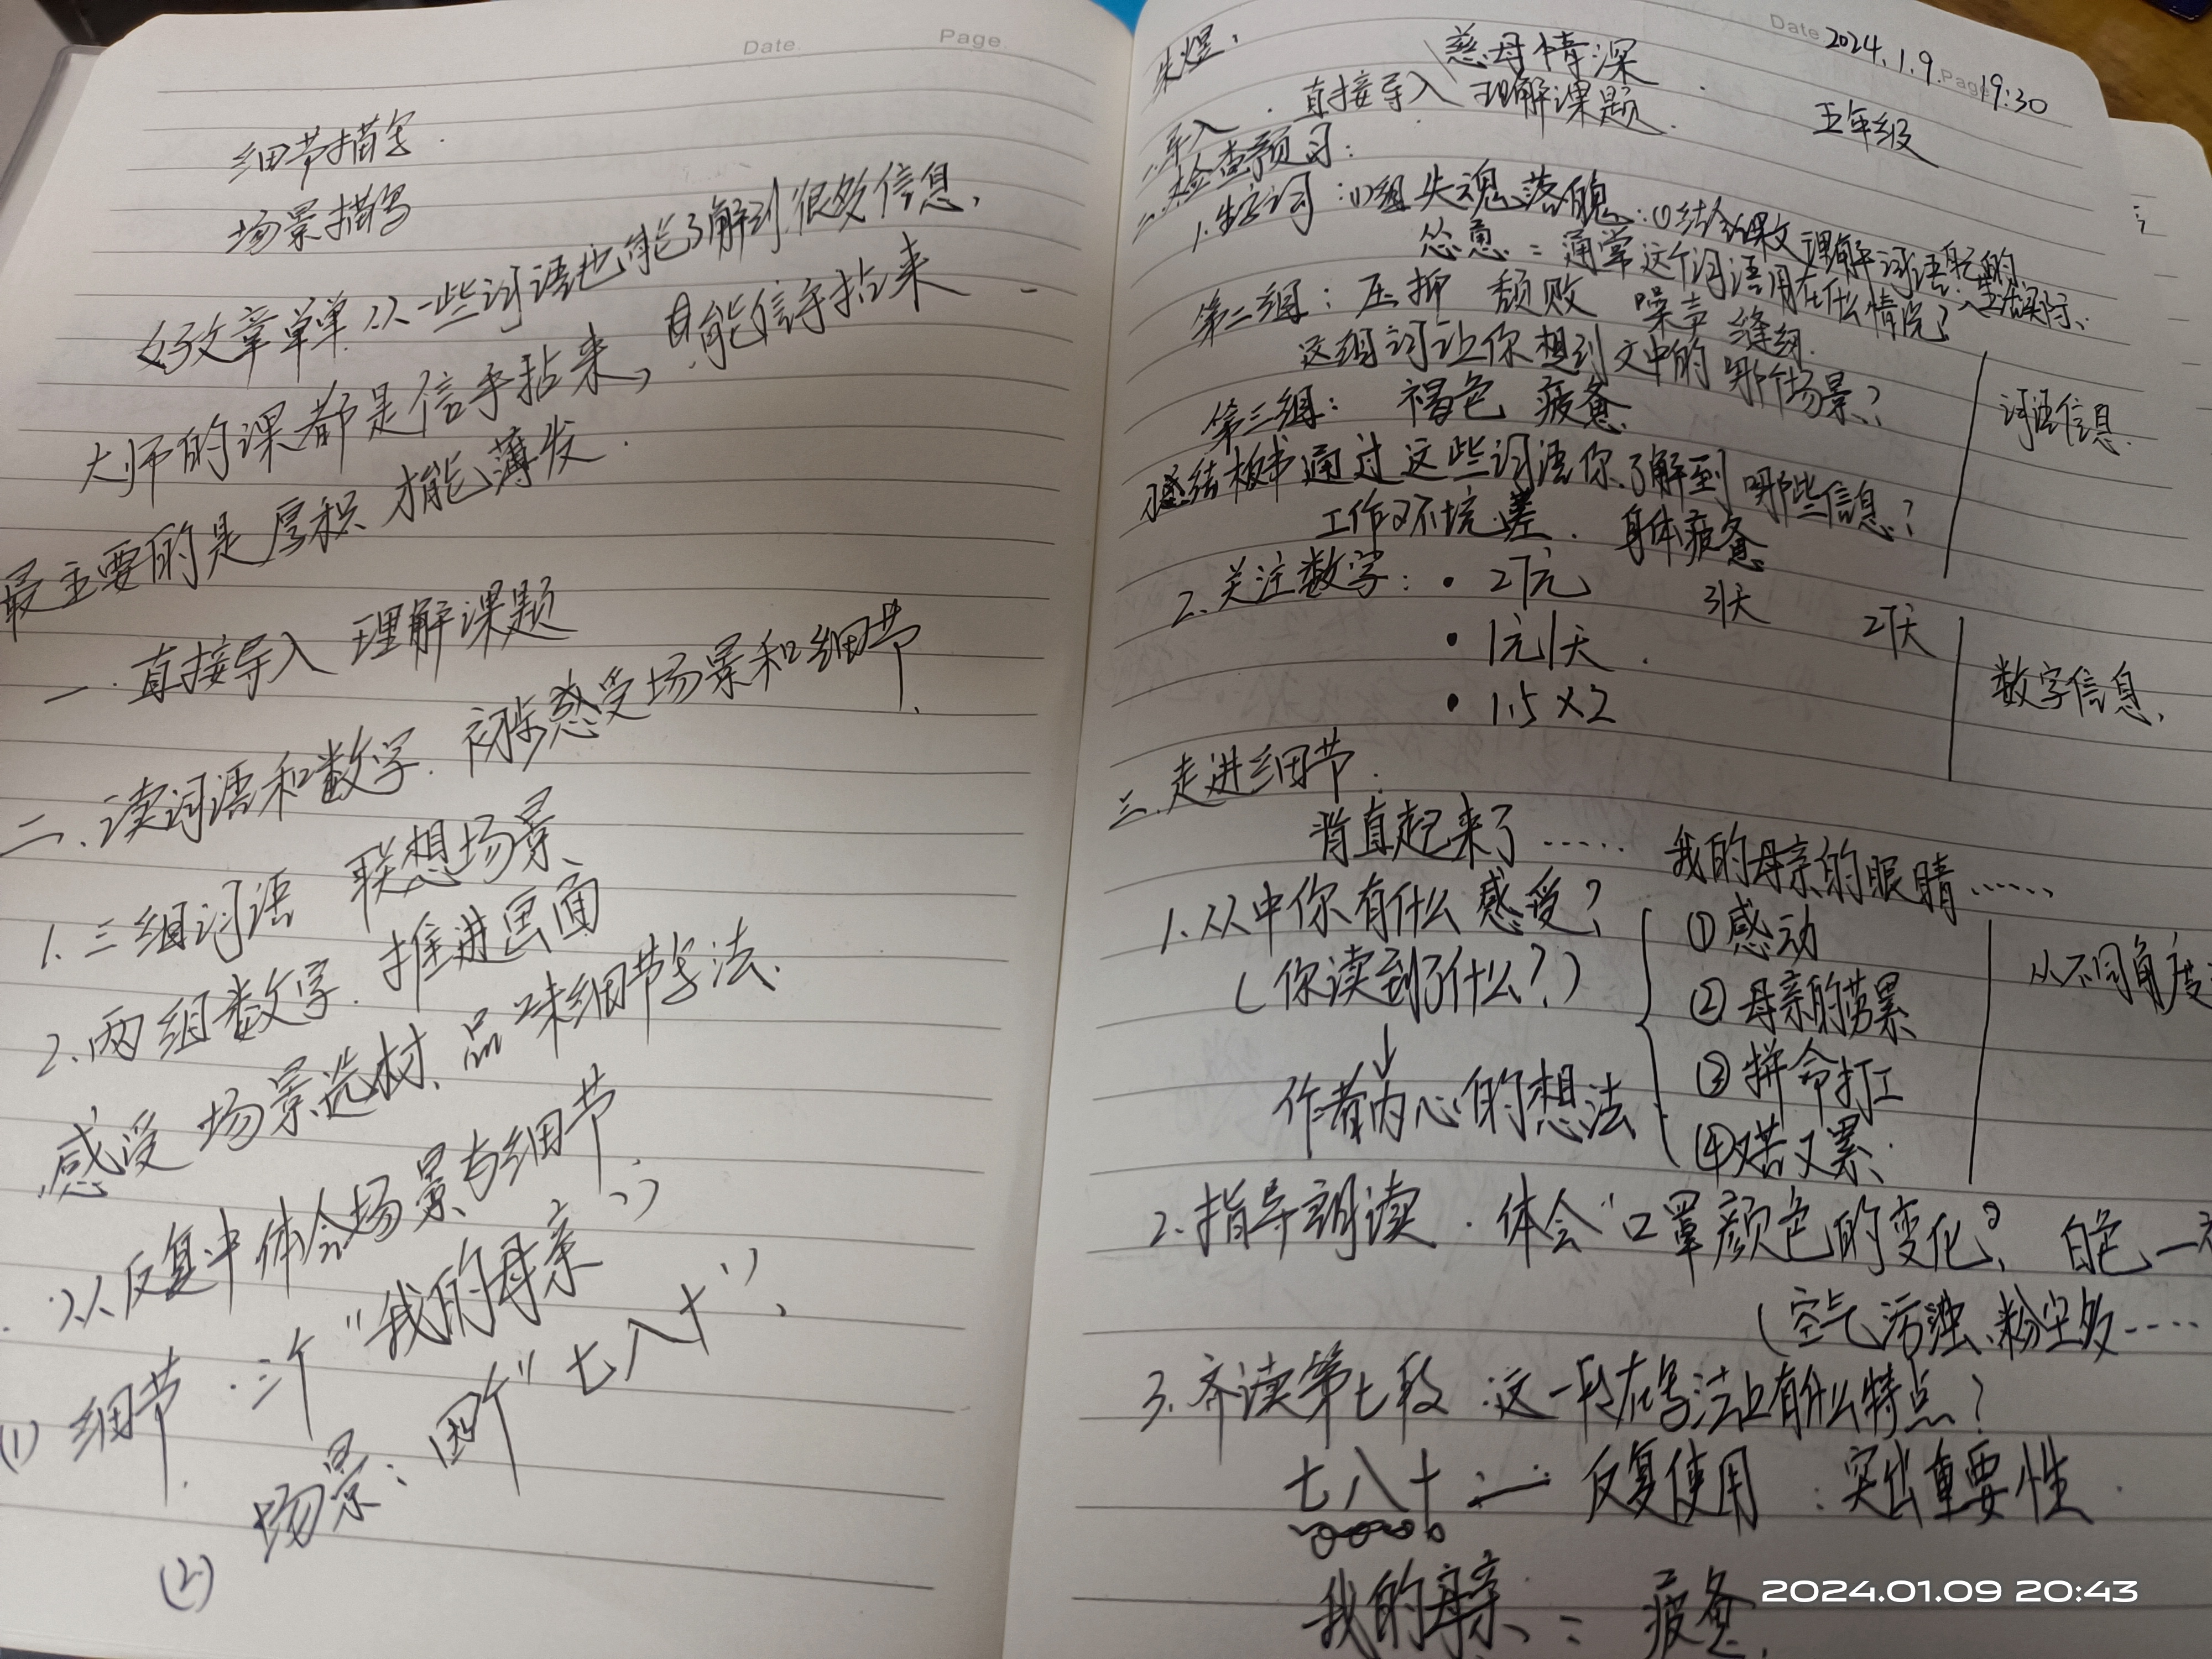 Date.
Page.
细节描写.
场景描写
好文章单单从一些词语也能了解到很多信息,
大师的课都是信手拈来,能信手拈来
最主要的是厚积才能薄发.
一.直接导入 理解课题
二.读词语和数字.初步感受场景和细节.
1.三组词语 联想场景
2.两组数字.推进画面
感受场景选材、品味细节写法.
从反复中体会场景与细节.
(1)细节.三个"我的母亲"
(2)场景:四个"七八十".
Date 2024.1.9. Page 19:30
朱煜.
慈母情深
五年级
一.导入.直接导入 理解课题.
二.检查预习:
1.生字词:(1)组 失魂落魄:①结合课文理解词语 ②生活实际、
怂恿:通常这个词语用在什么情况?
第二组:压抑 颓败 噪声 缝纫.
这组词让你想到文中的哪个场景?
第三组: 褐色 疲惫
词语信息.
总结板书 通过这些词语你了解到哪些信息?
工作环境差. 身体疲惫
2.关注数字:•2元 3天 2天
•1元1天.
•1.5×2
数字信息,
三.走进细节.
背直起来了…… 我的母亲的眼睛……
1.从中你有什么感受?
(你读到了什么?)
↓
作者内心的想法
①感动
②母亲的劳累
③拼命打工
④又苦又累.
从不同角度
2.指导朗读.体会"口罩颜色的变化",白色—
(空气污浊、粉尘多……
3.齐读第七段.这一段在写法上有什么特点?
七八十:— 反复使用:突出重要性.
我的母亲:疲惫.
2024.01.09 20:43